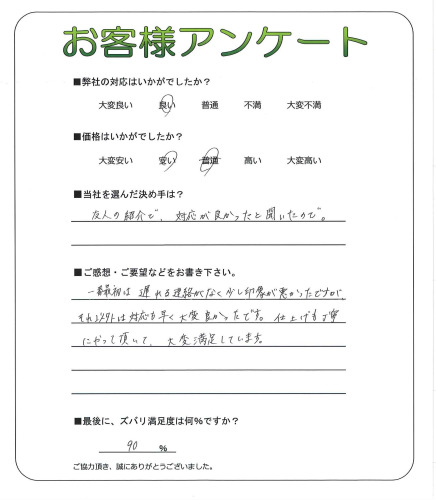 お客様アンケート
■弊社の対応はいかがでしたか?
大変良い 良い 普通 不満 大変不満
■価格はいかがでしたか?
大変安い 安い 普通 高い 大変高い
■当社を選んだ決め手は?
友人の紹介で、対応が良かったと聞いたので。
■ご感想・ご要望などをお書き下さい。
一番最初は遅れる連絡がなく少し印象が悪かったですが、
それ以外は対応も早く大変良かったです。仕上げも丁寧
にやって頂いて、大変満足しています。
■最後に、ズバリ満足度は何%ですか?
90 %
ご協力頂き、誠にありがとうございました。